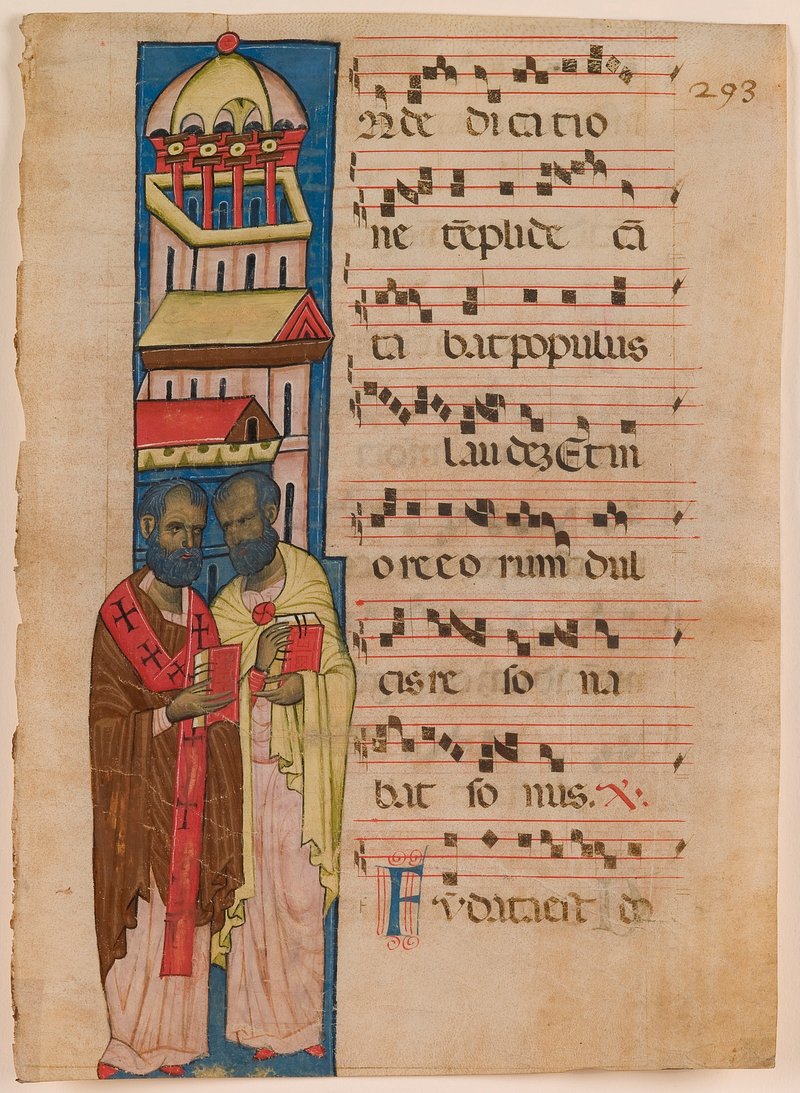 293
N de di ca tio
ne tēpli de cā
ta bat populus
lau dez Et in
ore eo rum dul
cis re so na
bat so nus. ℣:
Fūdata est do